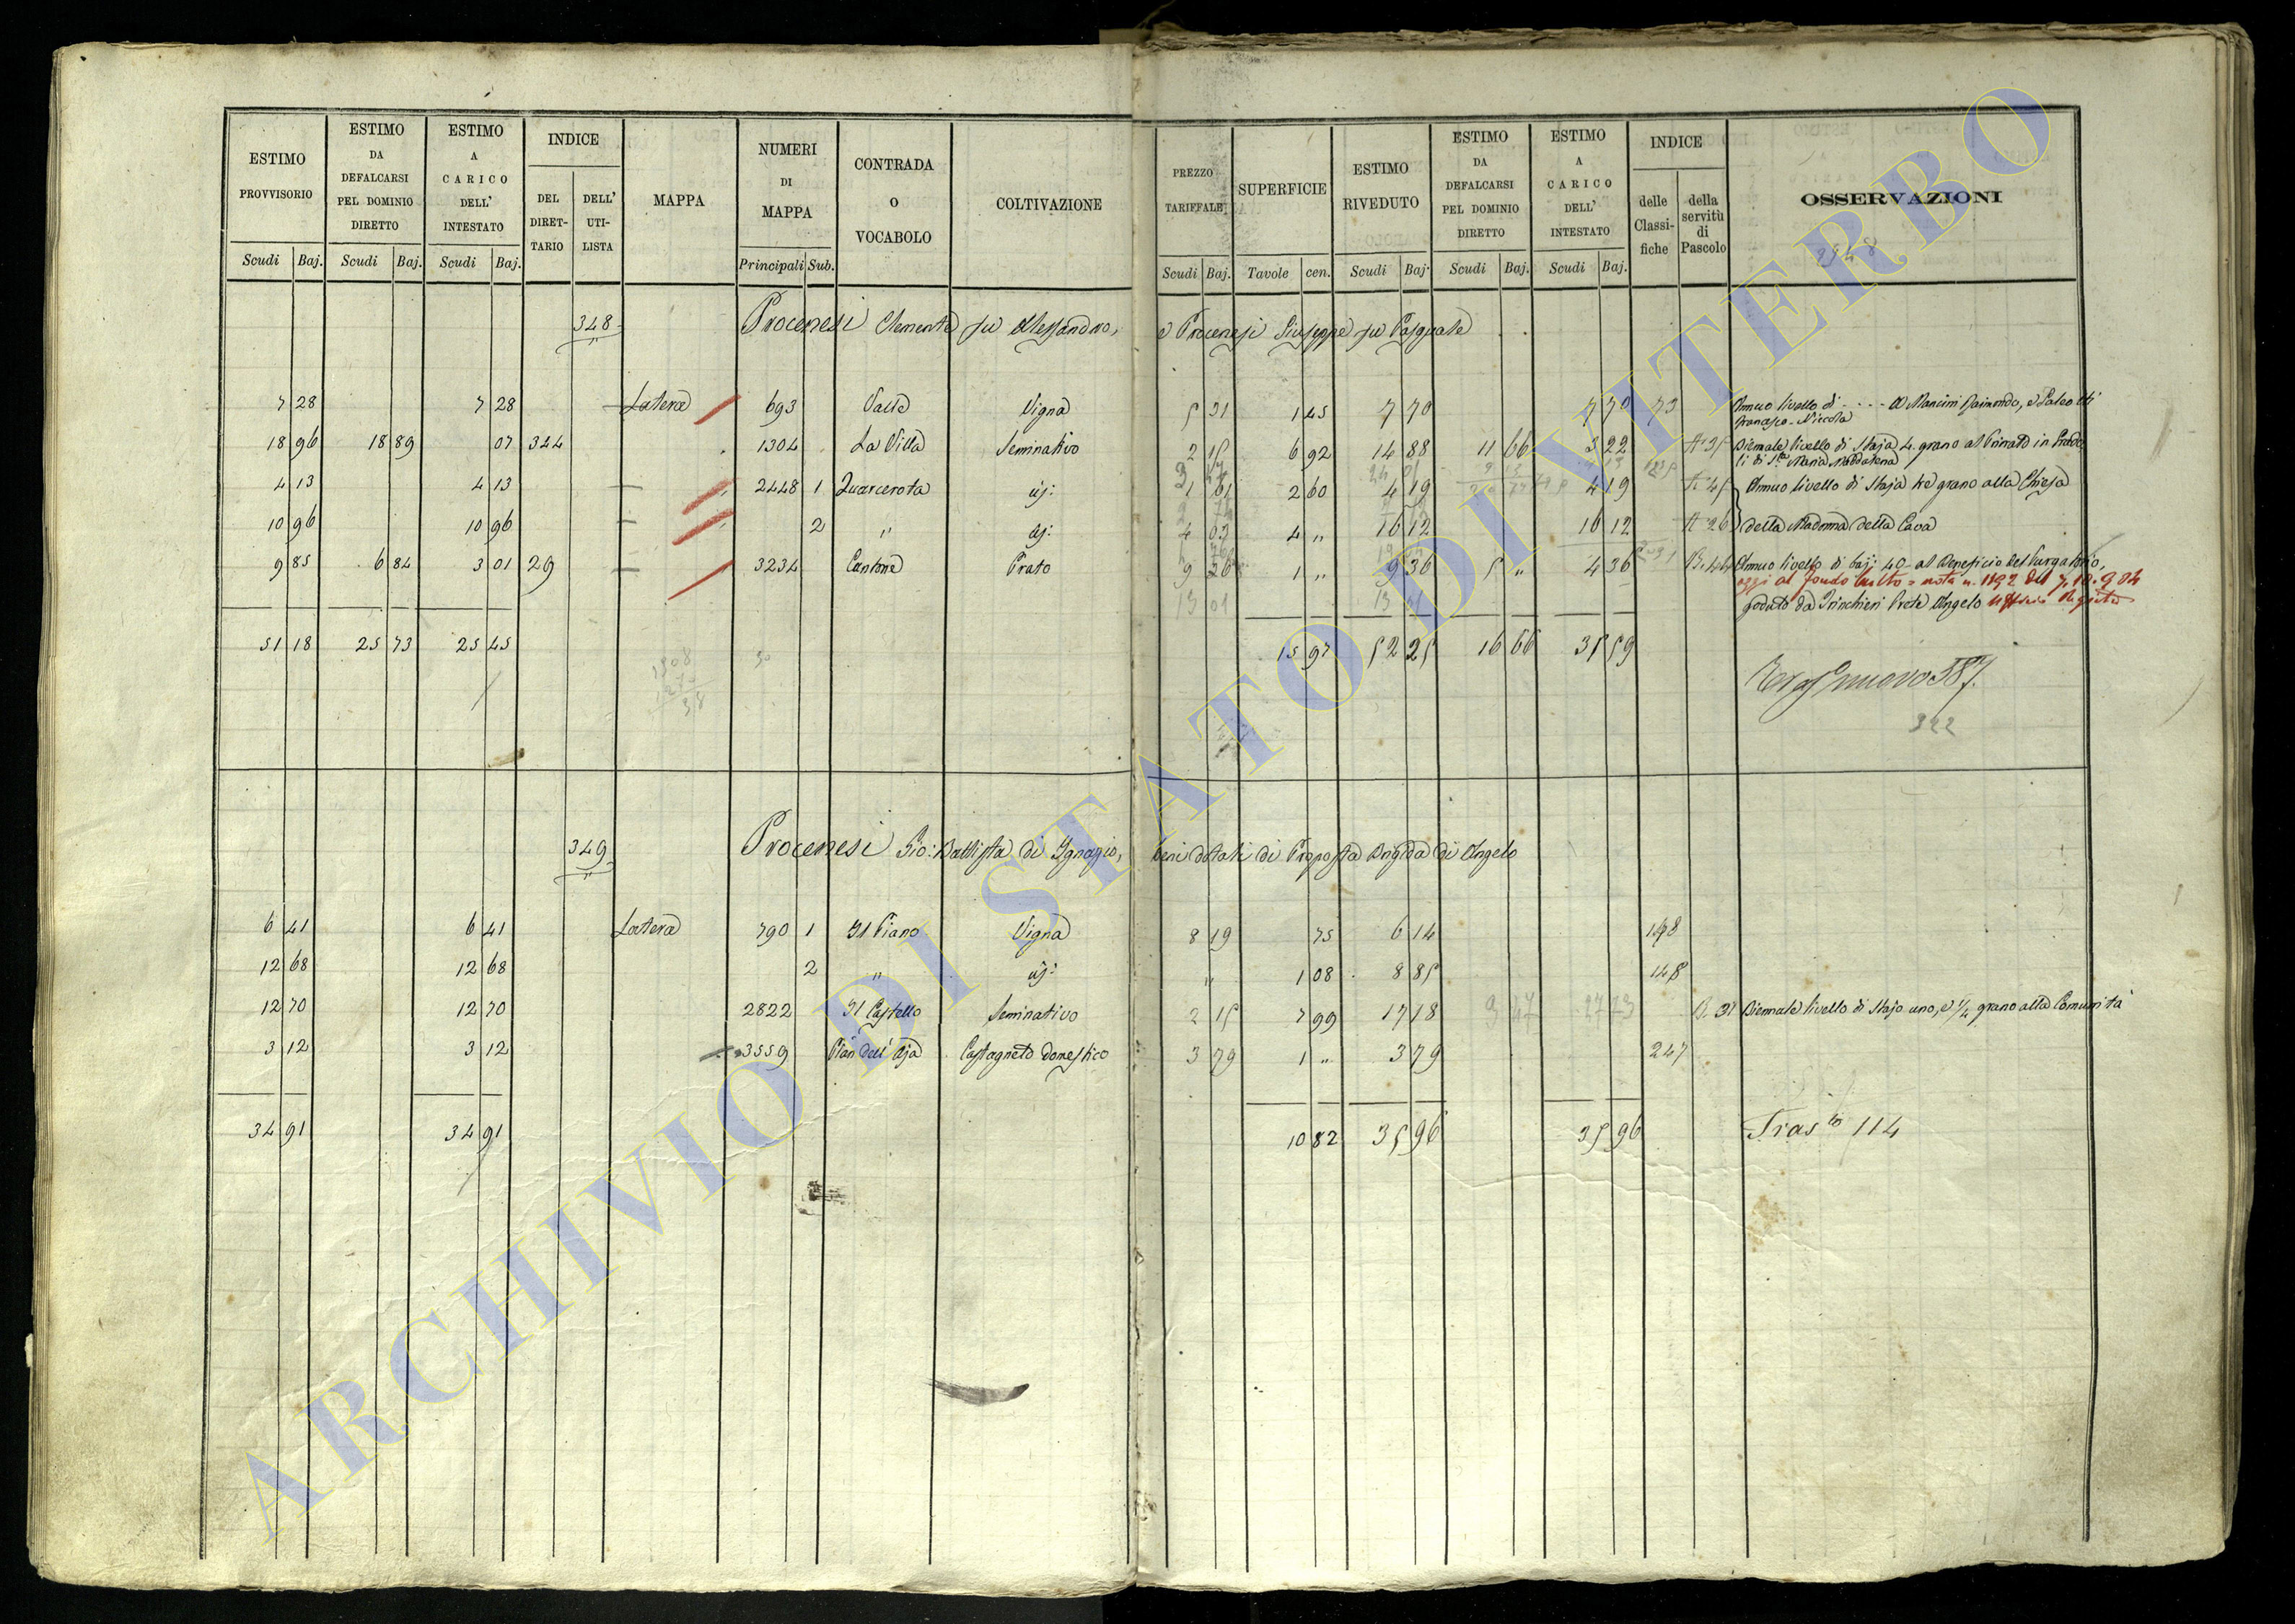 ESTIMO PROVVISORIO
ESTIMO DA DEFALCARSI PEL DOMINIO DIRETTO
ESTIMO A CARICO DELL' INTESTATO
INDICE
DEL DIRET-TARIO
DELL' UTI-LISTA
MAPPA
NUMERI DI MAPPA
CONTRADA O VOCABOLO
COLTIVAZIONE
PREZZO TARIFFALE
SUPERFICIE
ESTIMO RIVEDUTO
ESTIMO DA DEFALCARSI PEL DOMINIO DIRETTO
ESTIMO A CARICO DELL' INTESTATO
INDICE
delle Classi-fiche
della servitù di Pascolo
OSSERVAZIONI
Scudi Baj. Scudi Baj. Scudi Baj. Principali Sub. Scudi Baj. Tavole cen. Scudi Baj. Scudi Baj. Scudi Baj.
348 Procenesi Clemente fu Alessandro, e Procenesi Giuseppe fu Pasquale
7 28 7 28 Latera 693 Valle Vigna 5 31 1 45 7 70 7 70 73 Annuo livello di - - - - a Mancini Raimondo, e
18 96 18 89 07 344 1304 La Villa Seminativo 2 15 6 92 14 88 11 66 3 22 A 35 Biennale livello di Staja 4 grano al
li di S.ta Maria Maddalena
4 13 4 13 2448 1 Quarcerota id: 1 61 2 60 4 19 4 19 Annuo livello di Staja tre grano alla Chiesa
10 96 10 96 2 " id: 4 03 4 " 16 12 16 12 A 26 della Madonna della Cava
9 85 6 84 3 01 29 3234 Cantone Prato 9 36 1 " 9 36 5 " 4 36 B. 44 Annuo livello di baj: 40 al Beneficio del Purgatorio,
oggi al fondo Culto = nota n. 1192 del 7.10.904
goduto da Trinchieri Prete Angelo
51 18 25 73 25 45 15 97 52 25 16 66 35 59
nuovo 587.
322
349 Procenesi Gio: Battista di Ignazio, beni dotali di Proposta Brigida di Angelo
6 41 6 41 Latera 790 1 Il Piano Vigna 8 19 75 6 14 148
12 68 12 68 2 " id: " 1 08 8 85 148
12 70 12 70 2822 Il Castello Seminativo 2 15 7 99 17 18 B. 31 Biennale livello di Stajo uno, e 1/4 grano alla Comunità
3 12 3 12 3559 Pian dell' Aja Castagneto domestico 3 79 1 " 3 79 247
34 91 34 91 10 82 35 96 35 96 Tras.to 114
ARCHIVIO DI STATO DI VITERBO